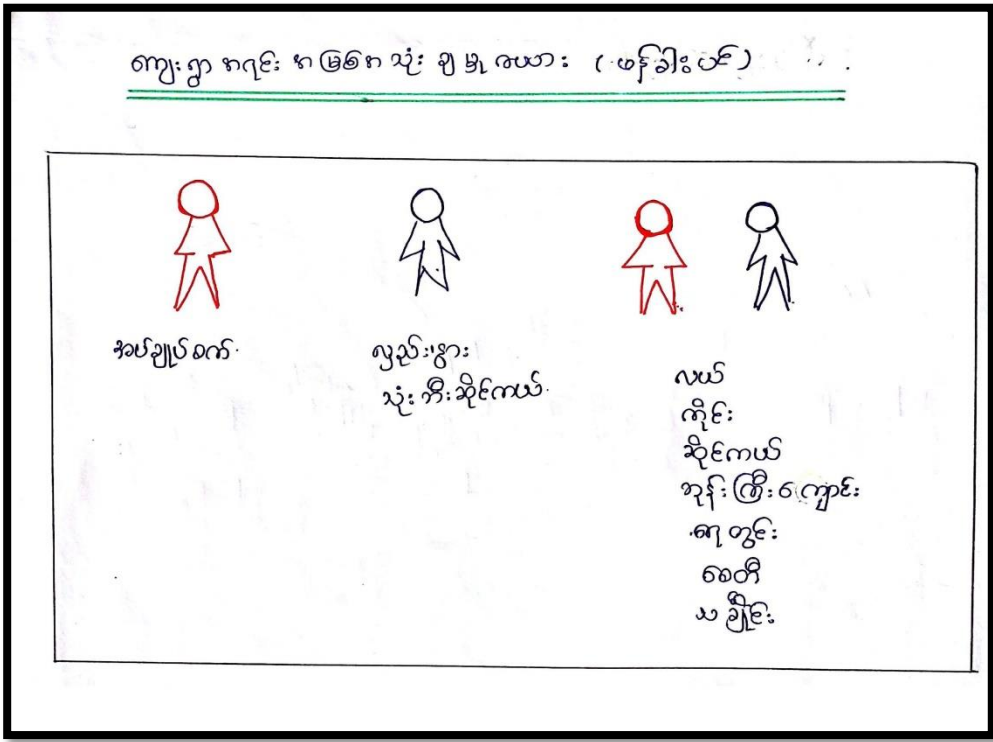 ကျေးရွာ အရင်း အမြစ်အသုံးချမှု ဇယား (ဖန်ခါးပင်)
အပ်ချုပ်စက်
လှည်း၊နွား
သုံးဘီးဆိုင်ကယ်
လယ်
ကိုင်း
ဆိုင်ကယ်
ဘုန်းကြီးကျောင်း
ရေတွင်း
စေတီ
ယချိုင်း